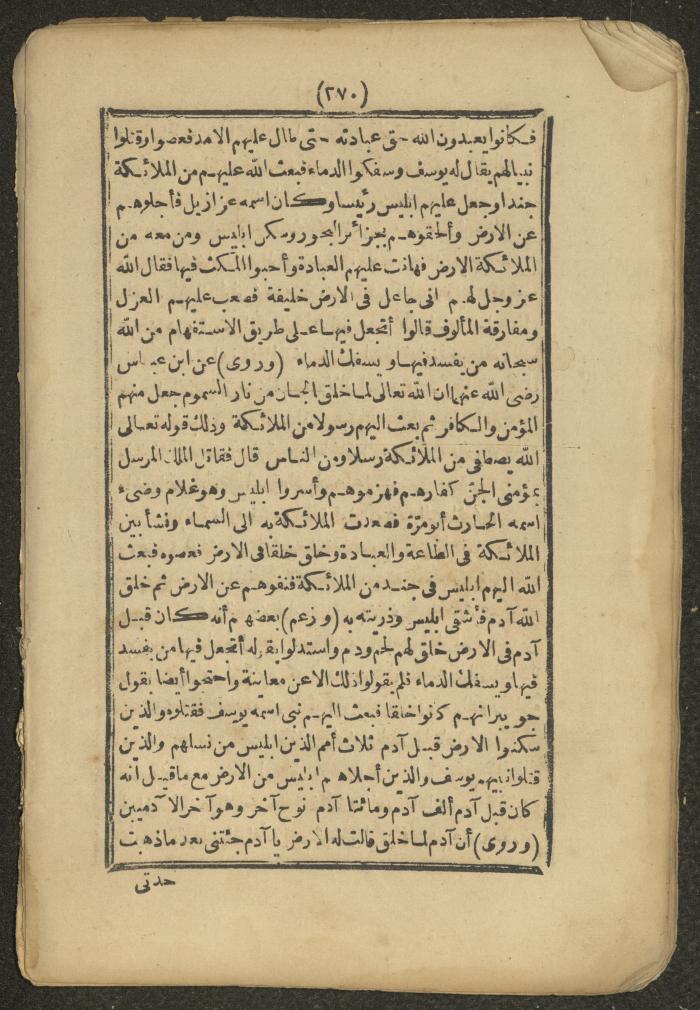 (٢٧٠)
فكانوا يعبدون الله حق عبادته حتى طال عليهم الامد فعصوا وقتلوا
نبيالهم يقال له يوسف وسفكوا الدماء فبعث الله عليهم من الملائكة
جندا وجعل عليهم ابليس رئيسا وكان اسمه عزازيل فأجلوهم
عن الارض وألحقوهم بجزائر البحور وسكن ابليس ومن معه من
الملائكة الارض فهانت عليهم العبادة وأحبوا المكث فيها فقال الله
عز وجل لهم انى جاعل فى الارض خليفة فصعب عليهم العزل
ومفارقة المألوف قالوا أتجعل فيها على طريق الاستفهام من الله
سبحانه من يفسد فيها ويسفك الدماء (وروى) عن ابن عباس
رضى الله عنهما ان الله تعالى لما خلق الجان من نار السموم جعل منهم
المؤمن والكافر ثم بعث اليهم رسولا من الملائكة وذلك قوله تعالى
الله يصطفى من الملائكة رسلا ومن الناس قال فقاتل الملك المرسل
بمؤمنى الجن كفارهم فهزموهم وأسروا ابليس وهو غلام وضىء
اسمه الحارث أبو مرّة فصعدت الملائكة به الى السماء ونشأ بين
الملائكة فى الطاعة والعبادة وخلق خلقا فى الارض فعصوه فبعث
الله اليهم ابليس فى جند من الملائكة فنفوهم عن الارض ثم خلق
الله آدم فأشقى ابليس وذريته به (وزعم) بعضهم أنه كان قبل
آدم فى الارض خلق لهم لحم ودم واستدلوا بقوله أتجعل فيها من يفسد
فيها ويسفك الدماء فلم يقولوا ذلك الا عن معاينة واحتجوا أيضا بقول
جويبر انهم كانوا خلقا فبعث اليهم نبى اسمه يوسف فقتلوه والذين
سكنوا الارض قبل آدم ثلاث أمم الذين ابليس من نسلهم والذين
قتلوا نبيهم يوسف والذين أجلاهم ابليس من الارض مع ما قيل انه
كان قبل آدم ألف آدم ومائتا آدم نوح آخر وهو آخر الا دميين
(وروى) أن آدم لما خلق قالت له الارض يا آدم جئتنى بعد ما ذهبت
حدتى